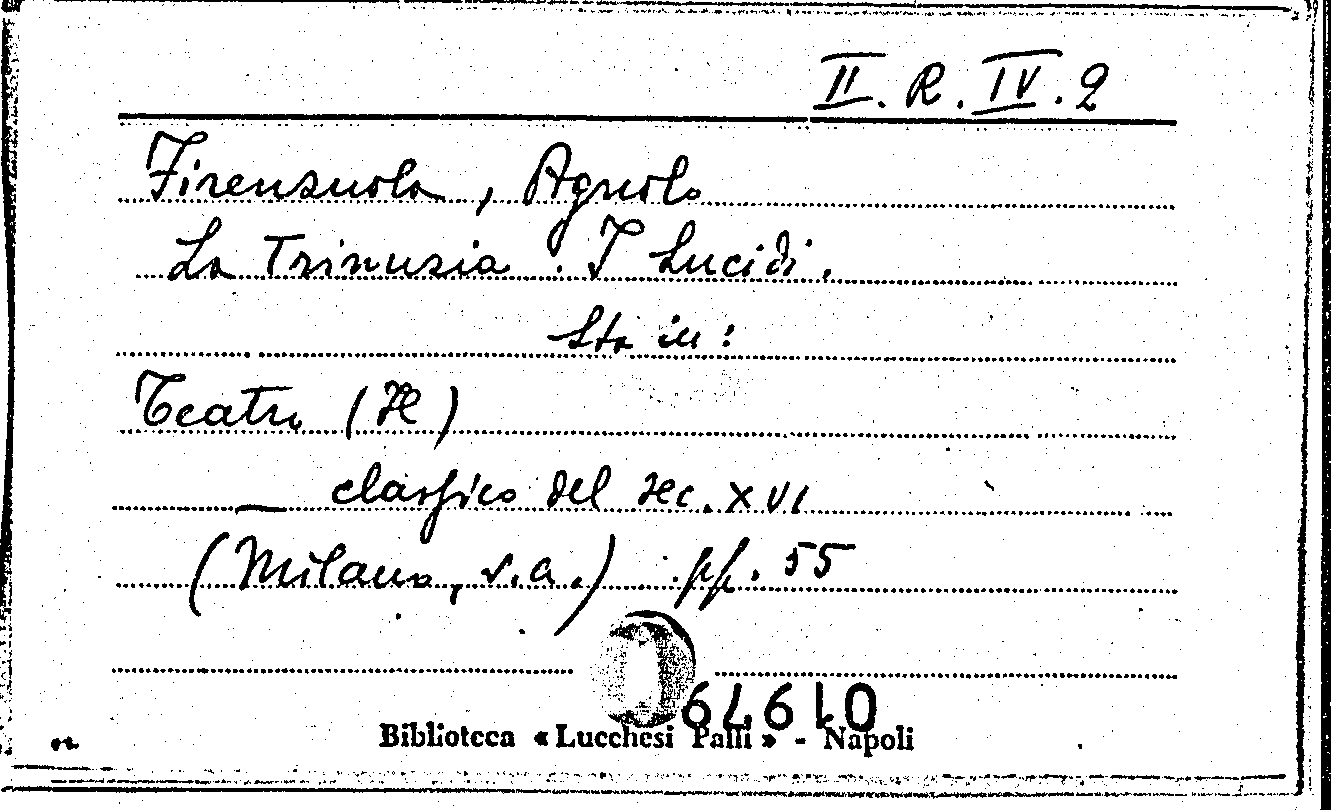 II. R. IV. 2
Firenzuola, Agnolo
La Trinuzia. I Lucidi.
Sta in:
Teatro (Il)
classico del sec. XVI
(Milano, s.a.) pp. 55
Biblioteca « Lucchesi Palli » - Napoli